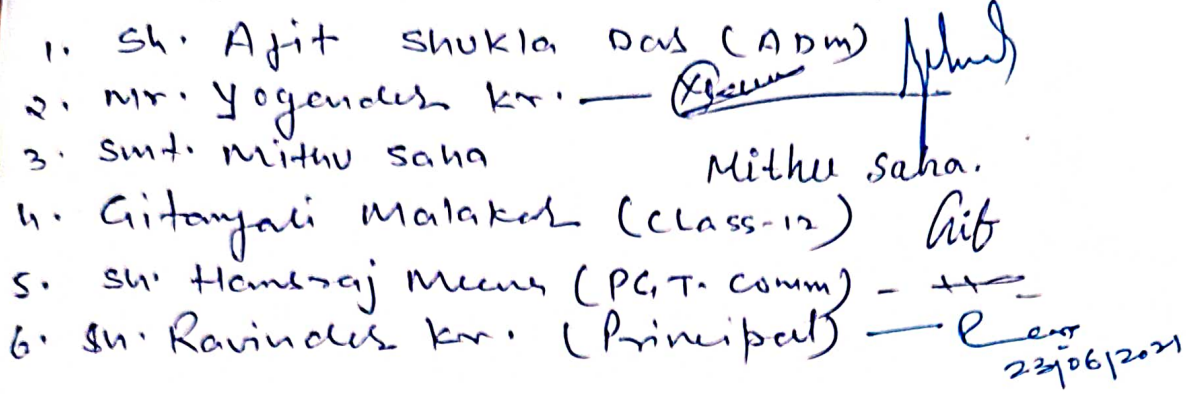 1. Sh. Ajit Shukla Das (ADM)
2. Mr. Yogender kr. —
3. Smt. Mithu Saha Mithu Saha.
4. Gitanjali Malakar (Class-12) Git
5. Sh. Hansraj Meena (PGT. Comm) -
6. Sh. Ravinder kr. (Principal) —
23/06/2021